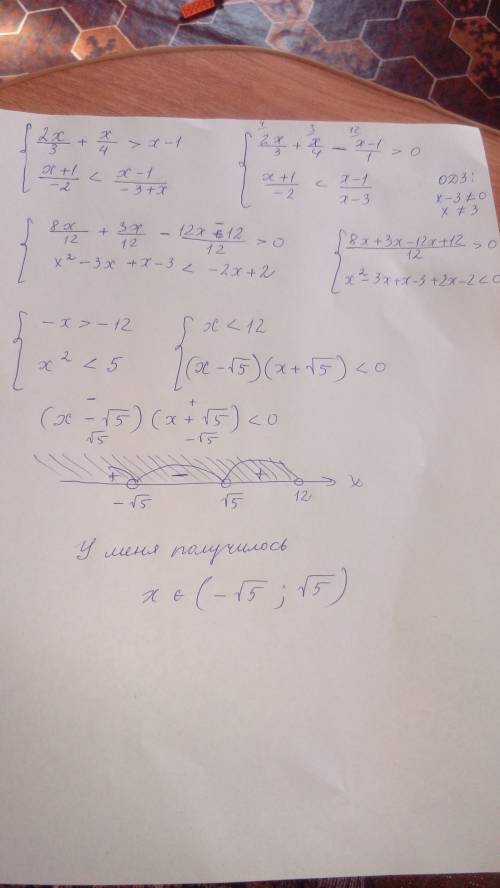 { 2x/3 + x/4 > x-1
(x+1)/-2 < (x-1)/(-3+x)
{ 4/ 2x/3 + 3/ x/4 - 12/ (x-1)/1 > 0
(x+1)/-2 < (x-1)/(x-3)
ОДЗ:
x-3≠0
x≠3
{ 8x/12 + 3x/12 - (12x-12)/12 > 0
x²-3x+x-3 < -2x+2
{ (8x+3x-12x+12)/12 > 0
x²-3x+x-3+2x-2<0
{ -x > -12
x² < 5
{ x < 12
(x-√5)(x+√5) < 0
- +
(x - √5)(x + √5) < 0
√5 -√5
+ - + x
-√5 √5 12
У меня получилось
x ∈ (-√5 ; √5)